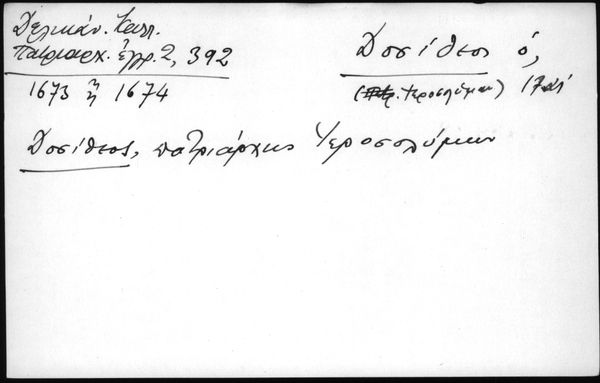 Δελικάν. Κατλ.
Πατριαρχ. ἐγγρ. 2, 392
1673 ἢ 1674
Δοσίθεος ὁ,
(Ἱεροσολύμων)
Δοσίθεος, πατριάρχης Ἱεροσολύμων